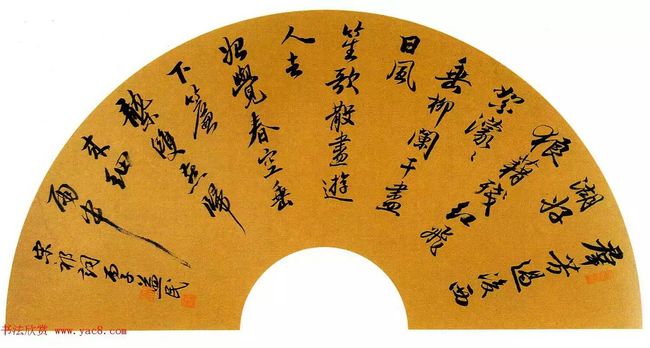 羣芳過後西
湖好
狼藉殘紅飛
絮濛〻
垂柳闌干盡
日風
笙歌散盡遊
人去
始覺春空垂
下簾
櫳雙燕歸
來細
雨中
宋祁詞 丙子益民
书法欣赏 www.yac8.com